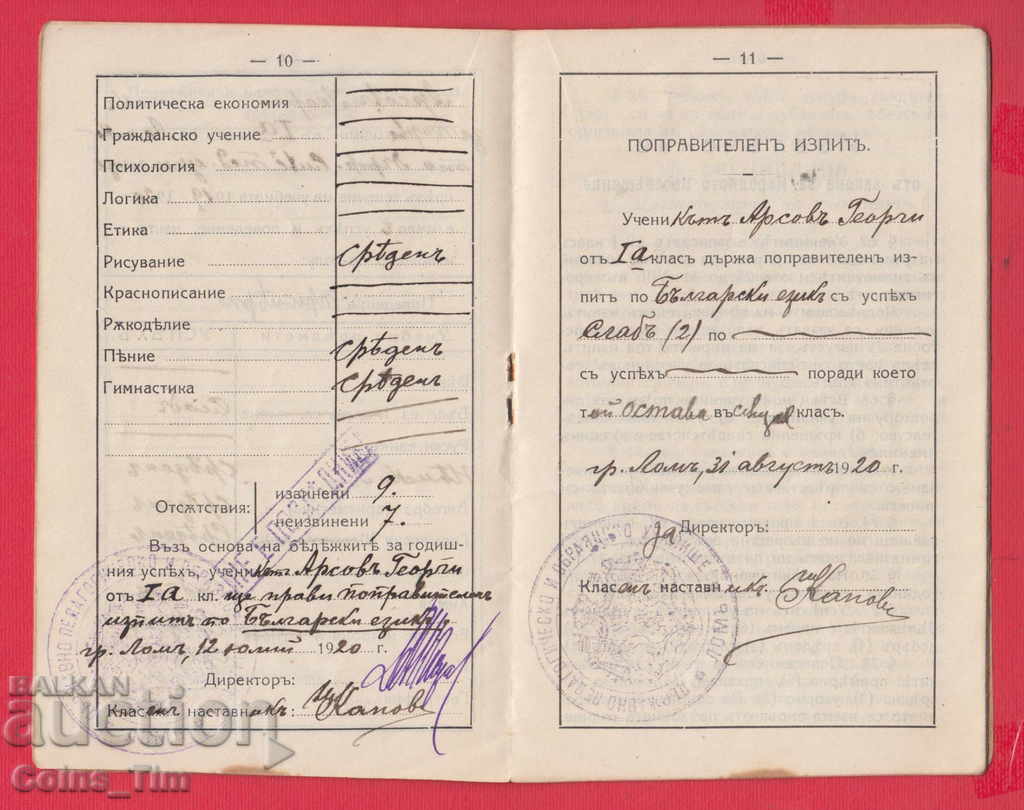 — 10 —
Политическа економия
Гражданско учение
Психология
Логика
Етика
Рисувание Срѣденъ
Краснописание
Рѫкодѣлие
Пѣние Срѣденъ
Гимнастика Срѣденъ
Отсѫтствия: извинени 9.
неизвинени 7.
Възъ основа на бѣлѣжкитѣ за годиш-
ния успѣхъ, ученикътъ Арсовъ Георги
отъ Iа кл. ще прави поправителенъ
изпитъ по Български езикъ
гр. Ломъ, 12 юний 1920 г.
Директоръ:
Класенъ наставникъ: Капов
— 11 —
ПОПРАВИТЕЛЕНЪ ИЗПИТЪ.
Ученикътъ Арсовъ Георги
отъ Iа класъ държа поправителенъ из-
питъ по Български езикъ съ успѣхъ
Слабъ (2) по
съ успѣхъ поради което
той остава въ класъ.
гр. Ломъ, 31 августъ 1920 г.
за Директоръ:
Класенъ наставникъ: Капов
BALKAN
auction
Coins_Tim